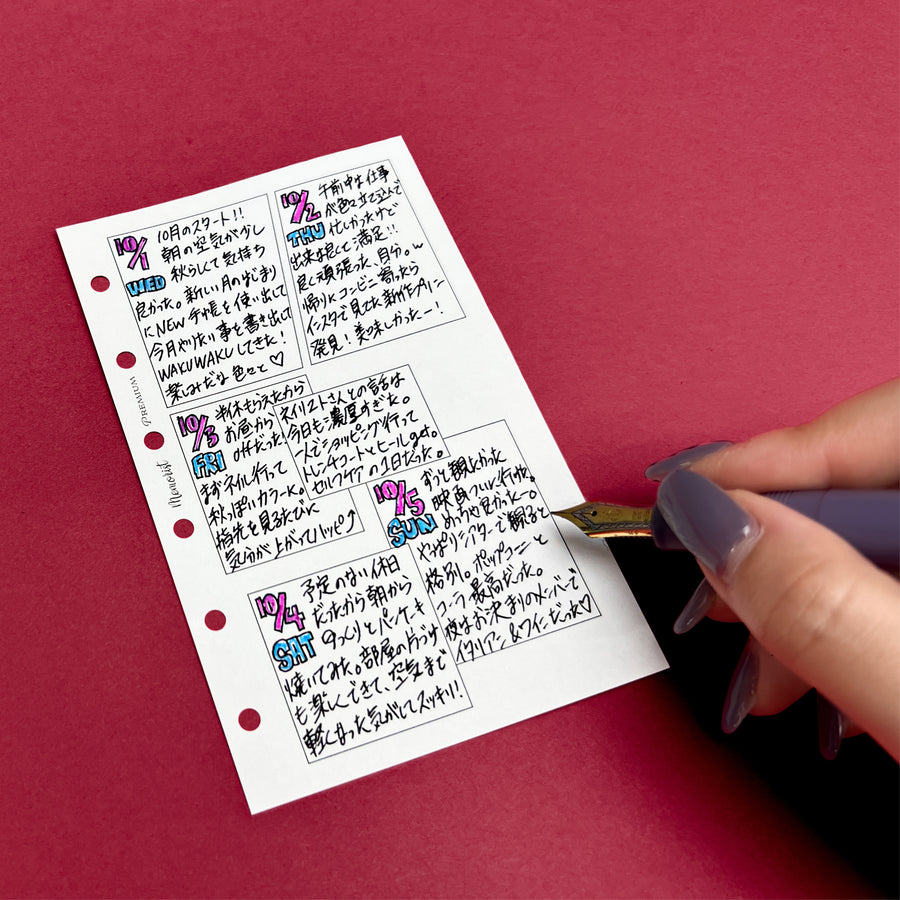 10/1
WED
10月のスタート!!
朝の空気が少し
秋らしくて気持ち
良かった。新しい月のはじまり
にNEW手帳を使い出して
今月やりたい事を書き出して
WAKUWAKUしてきた!
楽しみだな色々と♡
10/2
THU
午前中は仕事
が色々立て込んで
忙しかったけど
出来は良くて満足!!
良く頑張った、自分。
帰りにコンビニ寄ったら
インスタで見てた新作プリン
発見!美味しかったー!
10/3
FRI
半休もらえたから
お昼から
offだった!
まずネイル行って
秋っぽいカラーに。
指先を見るたびに
気分が上がってハッピー♪
ネイリストさんとの話は
今日も濃厚すぎた。
一人でショッピング行って
トレンチコートとヒールget。
セルフケアの1日だった。
10/4
SAT
予定のない休日
だったから朝から
ゆっくりとパンケーキ
焼いてみた。部屋の片づけ
も楽しくできて、空気まで
軽くなった気がしてスッキリ!
10/5
SUN
ずっと観たかった
映画ついに行けた。
めっちゃ良かったー。
やっぱりシアターで観ると
格別。ポップコーンと
コーラ最高だった。
夜はお決まりのメンバーで
イタリアン&ワインだった♡
Memorist
PREMIUM